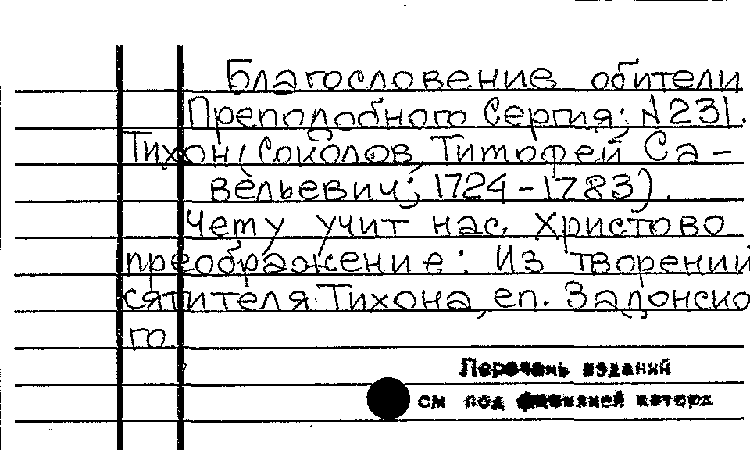 Благословение обители
Преподобного Сергия; N 231.
Тихон (Соколов, Тимофей Са-
вельевич; 1724-1783).
Чему учит нас Христово
преображение: Из творений
сятителя Тихона, еп. Задонско
го
Перечень изданий
см под фамилией автора